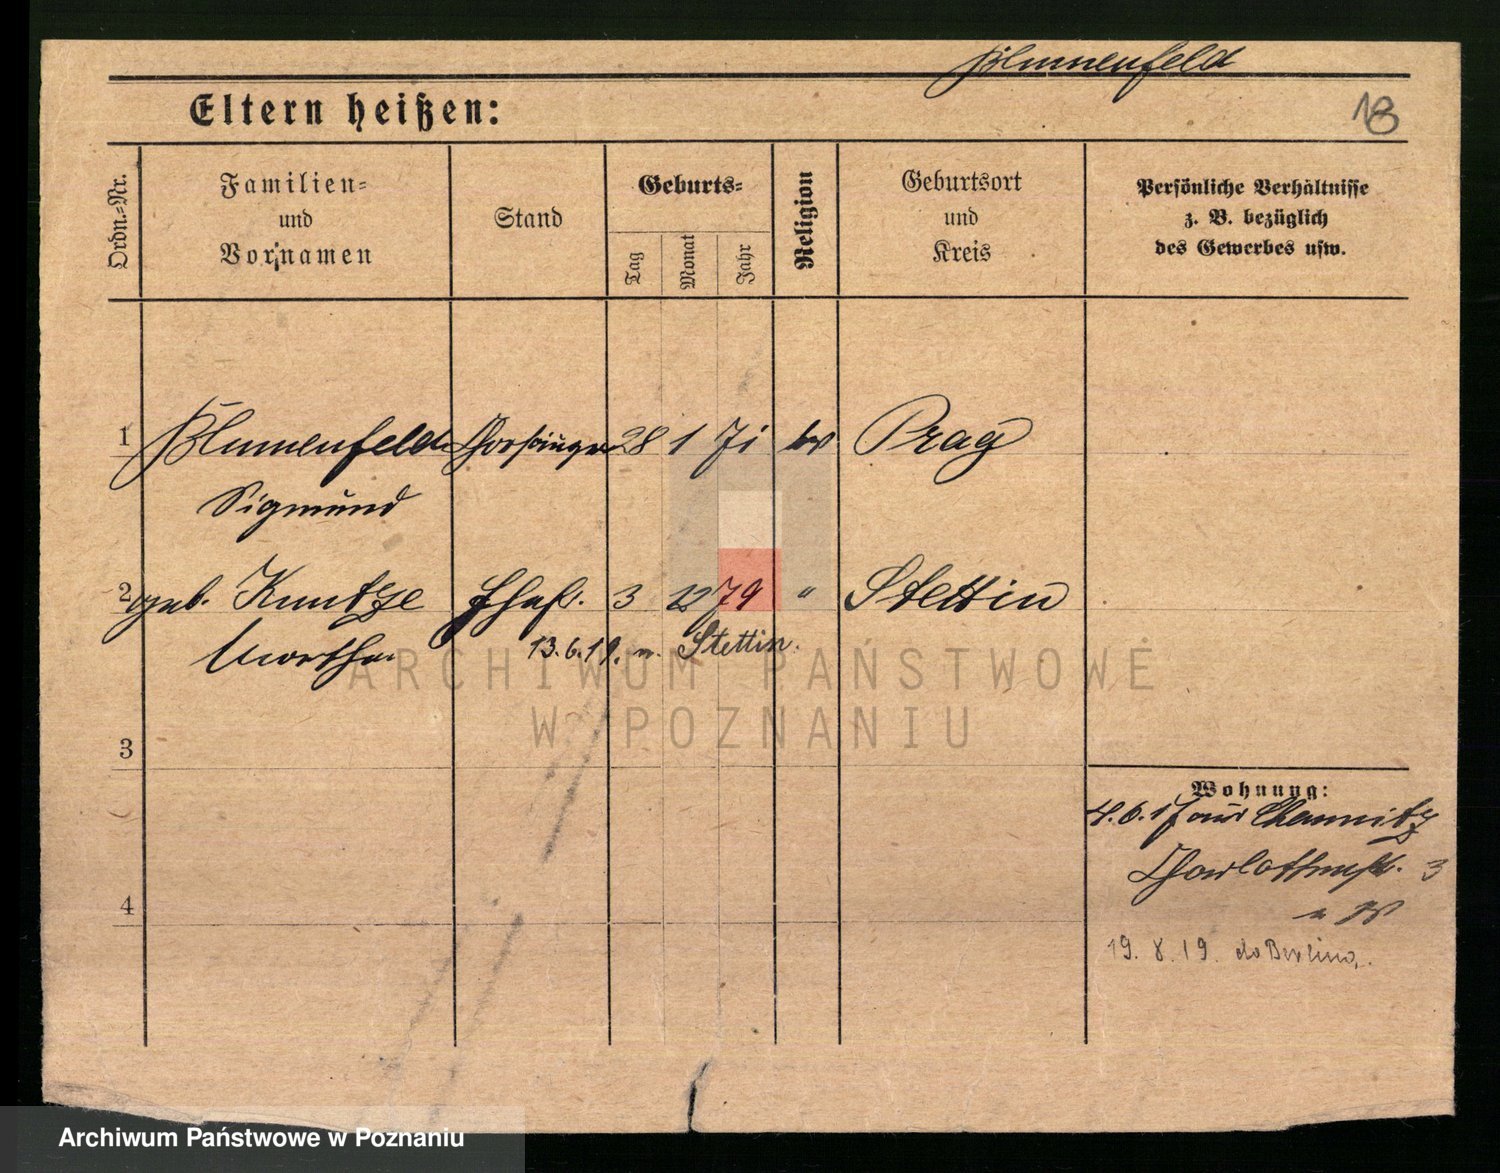 Blumenfeld
Eltern heißen:
18
Ordn.-Nr.
Familien-
und
Vornamen
Stand
Geburts-
Tag
Monat
Jahr
Religion
Geburtsort
und
Kreis
Persönliche Verhältnisse
z. B. bezüglich
des Gewerbes usw.
1 Blumenfeld Chorsänger 28 1 71 Prag
Sigmund
2 geb. Kuntze Ehefr. 3 12 79 " Stettin
Martha 13.6.19. n. Stettin.
3
Wohnung:
4.6.17 aus Chemnitz
Charlottenstr. 3
4
19. 8. 19. do Berlina.
ARCHIWUM PAŃSTWOWE
W POZNANIU
Archiwum Państwowe w Poznaniu